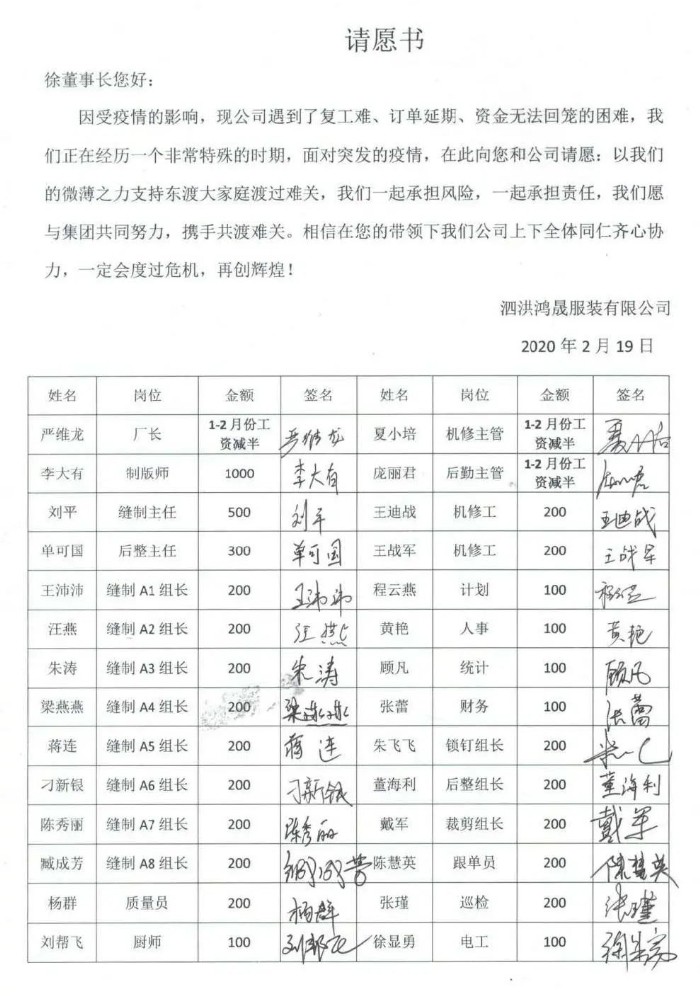 请愿书
徐董事长您好：
因受疫情的影响，现公司遇到了复工难、订单延期、资金无法回笼的困难，我
们正在经历一个非常特殊的时期，面对突发的疫情，在此向您和公司请愿：以我们
的微薄之力支持东渡大家庭渡过难关，我们一起承担风险，一起承担责任，我们愿
与集团共同努力，携手共渡难关。相信在您的带领下我们公司上下全体同仁齐心协
力，一定会度过危机，再创辉煌！
泗洪鸿晟服装有限公司
2020 年 2 月 19 日
姓名 岗位 金额 签名 姓名 岗位 金额 签名
严维龙 厂长 1-2 月份工资减半 严维龙 夏小培 机修主管 1-2 月份工资减半
李大有 制版师 1000 李大有 庞丽君 后勤主管 1-2 月份工资减半
刘平 缝制主任 500 刘平 王迪战 机修工 200 王迪战
单可国 后整主任 300 单可国 王战军 机修工 200 王战军
王沛沛 缝制 A1 组长 200 王沛沛 程云燕 计划 100
汪燕 缝制 A2 组长 200 汪燕 黄艳 人事 100 黄艳
朱涛 缝制 A3 组长 200 朱涛 顾凡 统计 100 顾凡
梁燕燕 缝制 A4 组长 200 张蕾 财务 100 张蕾
蒋连 缝制 A5 组长 200 蒋连 朱飞飞 锁钉组长 200
刁新银 缝制 A6 组长 200 刁新银 董海利 后整组长 200 董海利
陈秀丽 缝制 A7 组长 200 陈秀丽 戴军 裁剪组长 200 戴军
臧成芳 缝制 A8 组长 200 陈慧英 跟单员 200 陈慧英
杨群 质量员 200 杨群 张瑾 巡检 200 张瑾
刘帮飞 厨师 100 徐显勇 电工 100